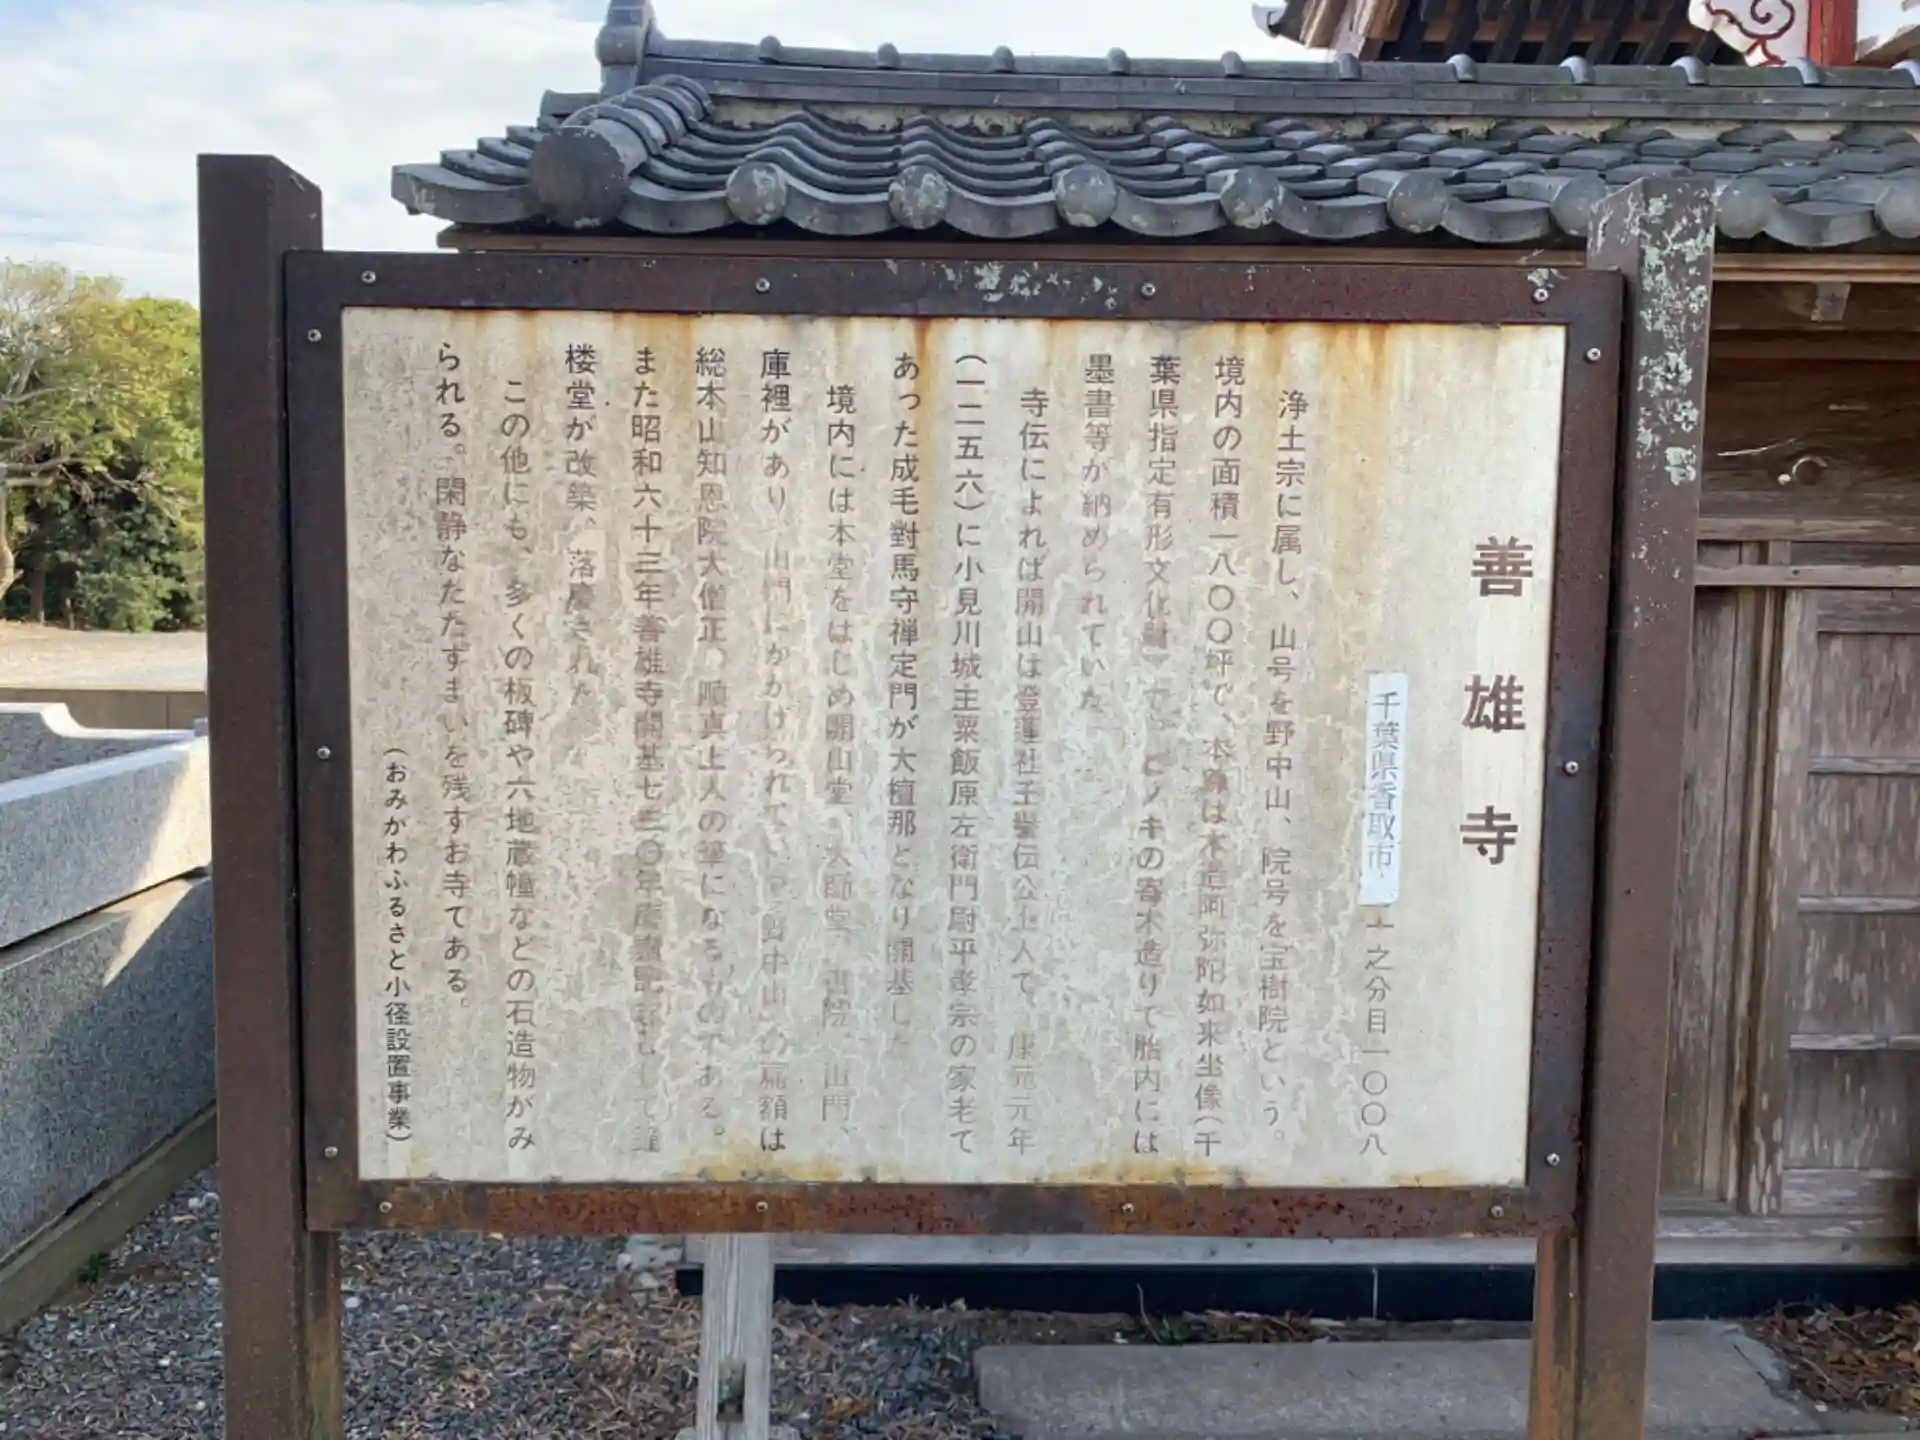 善雄寺
千葉県香取市
之分目一〇〇八
浄土宗に属し、山号を野中山、院号を宝樹院という。
境内の面積一八〇〇坪で、本尊は木造阿弥陀如来坐像(千
葉県指定有形文化財)で、ヒノキの寄木造りで胎内には
墨書等が納められていた
寺伝によれば開山は登蓮社王誉伝公上人で、康元元年
(一二五六)に小見川城主粟飯原左衛門尉平孝宗の家老で
あった成毛對馬守禅定門が大檀那となり開基した
境内には本堂をはじめ開山堂、大師堂、書院、山門、
庫裡があり、山門にかかげられている野中山の扁額は
総本山知恩院大僧正、順真上人の筆になるものである。
また昭和六十三年善雄寺開基七三〇年慶讃記念として鐘
楼堂が改築、落慶された
この他にも、多くの板碑や六地蔵幢などの石造物がみ
られる。閑静なたたずまいを残すお寺である。
(おみがわふるさと小径設置事業)